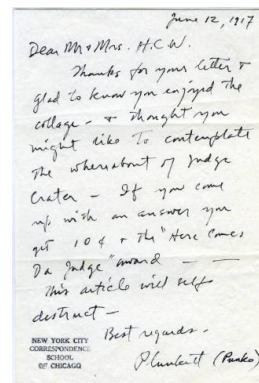 June 12, 1917
Dear Mr + Mrs. H.C.W.
Thanks for your letter +
glad to know you enjoyed the
collage - + thought you
might like to contemplate
the whereabout of Judge
Crater - If you come
up with an answer you
get 10¢ + the "Here Comes
Da Judge" award - -
This article will self
destruct -
Best regards -
Plunkett (Punko)
NEW YORK CITY
CORRESPONDENCE
SCHOOL
OF CHICAGO